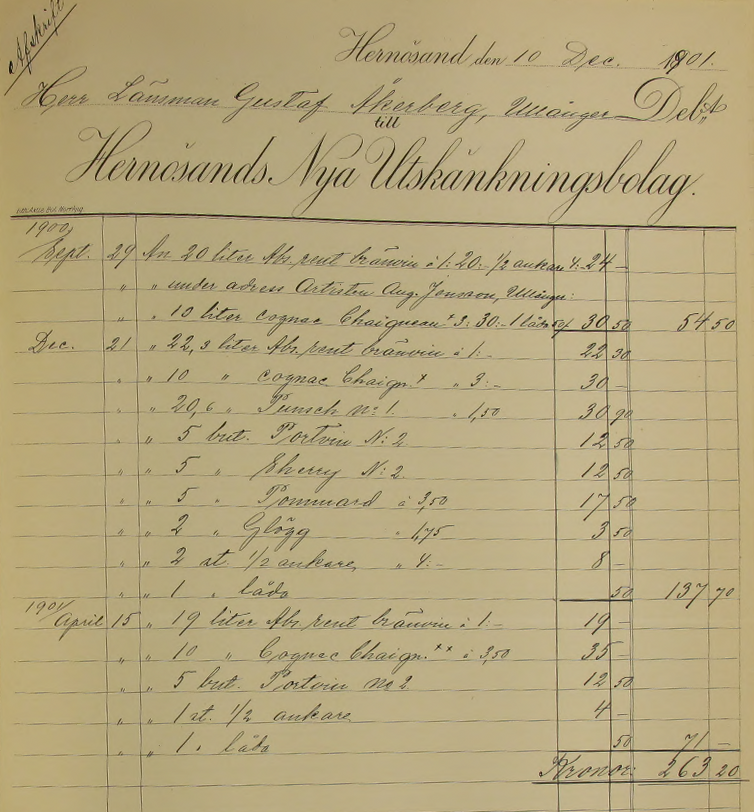 Afskrift
Hernösand den 10 Dec. 1901.
Herr Länsman Gustaf Åkerberg, Ullånger Debet
till
Hernösands Nya Utskänkningsbolag.
1900
Sept. 29 An 20 liter Abs. rent bränvin à 1: 20: 1/2 ankare 4: 24 -
" " under adress Artisten Aug. Jensson, Ullånger:
" " 10 liter cognac Chaigneau * 3: 30: - 1 låda 50 30 50 54 50
Dec. 21 " 22,3 liter Abs. rent bränvin à 1: - 22 30
" " 10 " cognac Chaign. * " 3: - 30 -
" " 20,6 " Punsch No: 1. " 1,50 30 90
" " 5 but. Portvin N: 2 12 50
" " 5 " Sherry N: 2 12 50
" " 5 " Pommard à 3,50 17 50
" " 2 " Glögg " 1,75 3 50
" " 2 st. 1/2 ankare " 4: - 8 -
" " 1 " låda 50 137 70
1901
April 15 " 19 liter Abs. rent bränvin à 1: - 19 -
" " 10 " Cognac Chaign. ** à 3,50 35 -
" " 5 but. Portvin No 2 12 50
" " 1 st. 1/2 ankare 4 -
" " 1 " låda 50 71 -
Kronor: 263 20